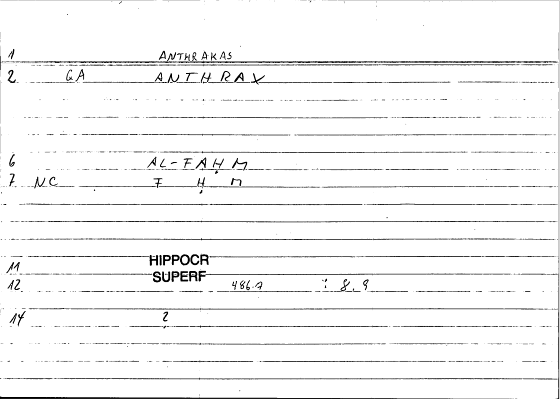 1 ANTHRAKAS
2 GA ANTHRAX
6 AL-FAḤM
7 NC F Ḥ M
11 HIPPOCR
12 SUPERF 486.A : 8.9
14 2